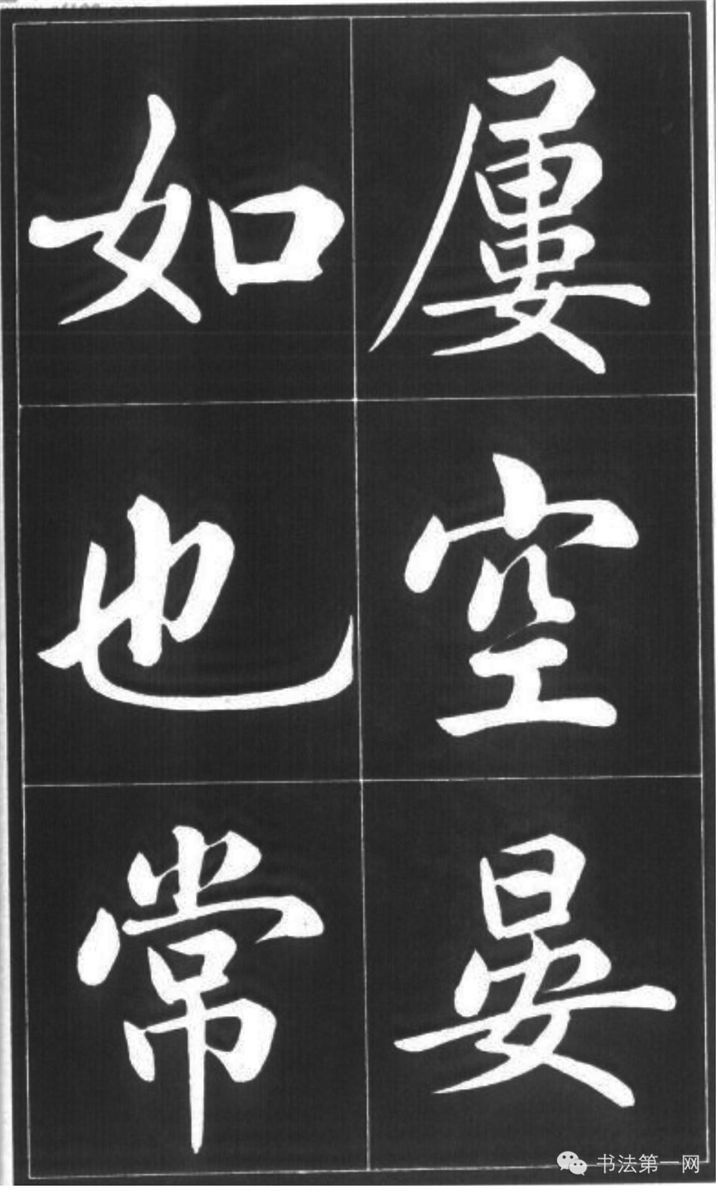 屢空晏
如也常
书法第一网